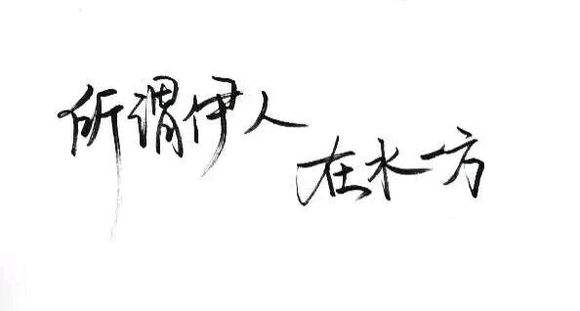 所谓伊人
在水一方